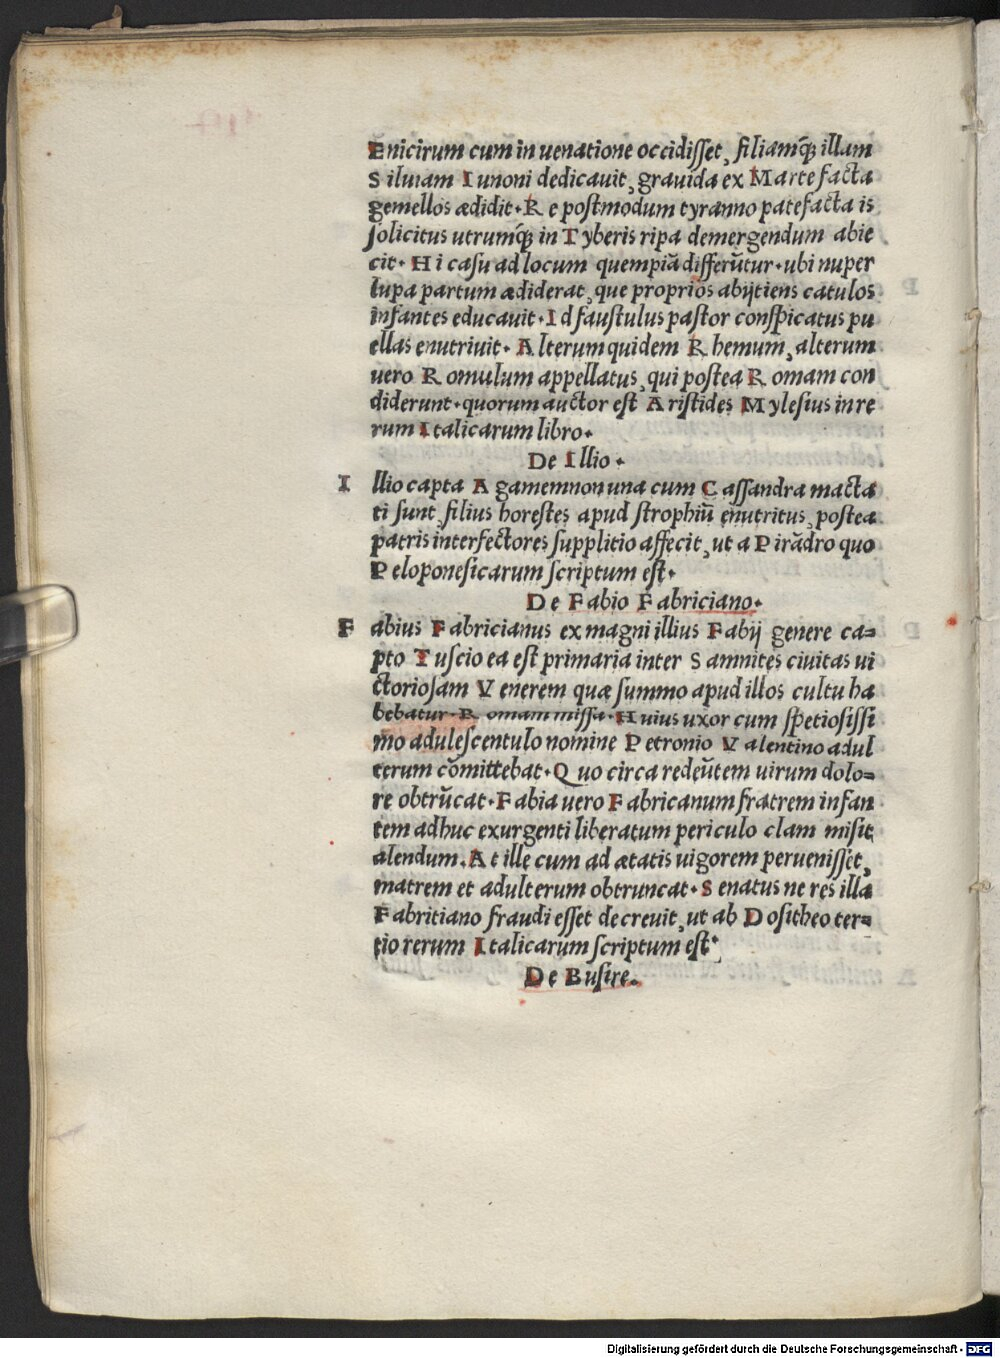 Enicirum cum in uenatione occidisset, filiamq̃ illam
Siluiam Iunoni dedicauit, grauida ex Marte facta
gemellos ædidit. Re postmodum tyranno patefacta is
solicitus utrumq̃ in Tyberis ripa demergendum abie
cit. Hi casu ad locum quempiã differũtur. ubi nuper
lupa partum ædiderat, que proprios abijtiens catulos
infantes educauit. Id faustulus pastor conspicatus pu
ellas enutriuit. Alterum quidem Rhemum, alterum
uero Romulum appellatus, qui postea Romam con
diderunt. quorum auctor est Aristides Mylesius in re
rum Italicarum libro.
De Illio.
I llio capta Agamemnon una cum Cassandra macta
ti sunt, filius horestes apud strophiũ enutritus, postea
patris interfectores supplitio affecit, ut a Pirãdro quo
Peloponesicarum scriptum est.
De Fabio Fabriciano.
F abius Fabricianus ex magni illius Fabij genere ca=
pto Tuscio ea est primaria inter Samnites ciuitas ui
ctoriosam Venerem quæ summo apud illos cultu ha
bebatur. Romam missa. Huius uxor cum spetiosissi
mo adulescentulo nomine Petronio Valentino adul
terum cõmittebat. Quo circa redeũtem uirum dolo=
re obtrũcat. Fabia uero Fabricanum fratrem infan
tem adhuc exurgenti liberatum periculo clam misit
alendum. At ille cum ad ætatis uigorem peruenisset,
matrem et adulterum obtruncat. Senatus ne res illa
Fabritiano fraudi esset decreuit, ut ab Dositheo ter=
tio rerum Italicarum scriptum est.
De Busire.
Digitalisierung gefördert durch die Deutsche Forschungsgemeinschaft - DFG